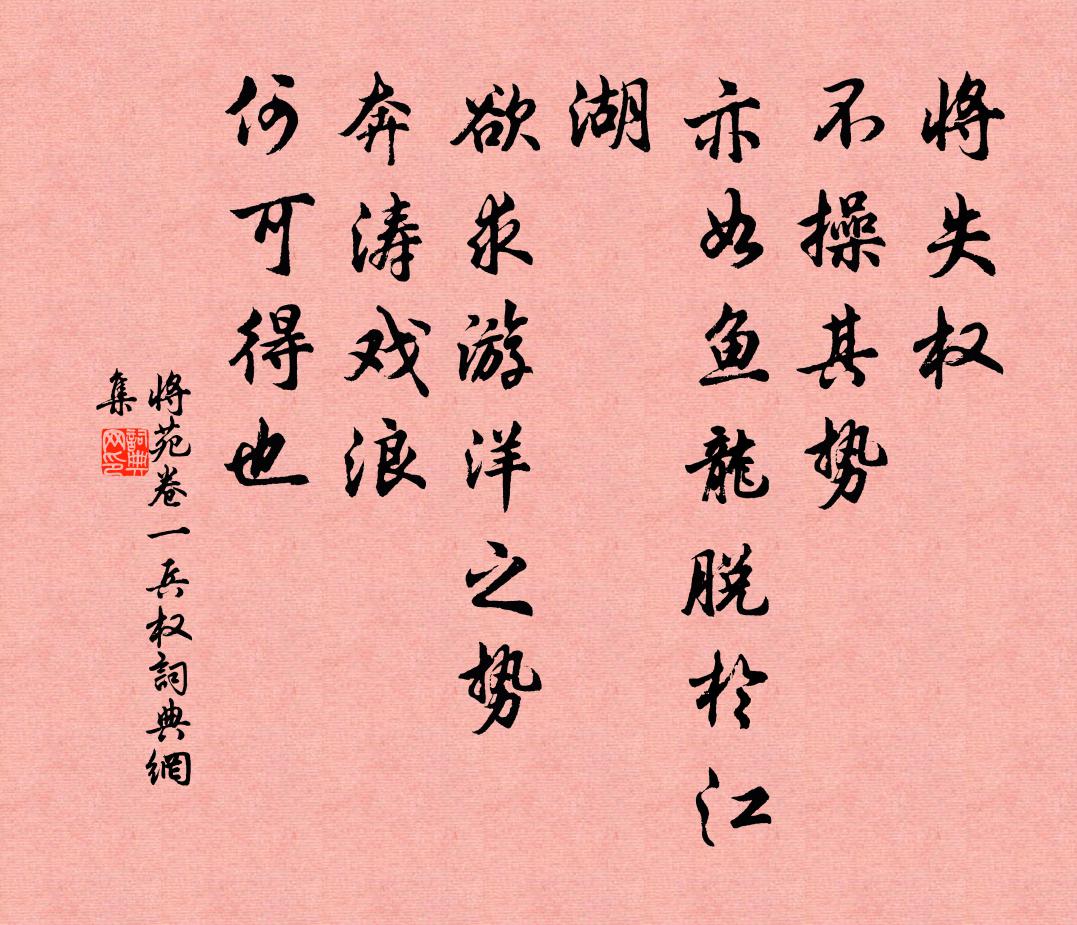 将失权
不操其势
亦如鱼龙脱於江
湖
欲求游洋之势
奔涛戏浪
何可得也
将苑卷一兵权詞典網
集
詞典
网印